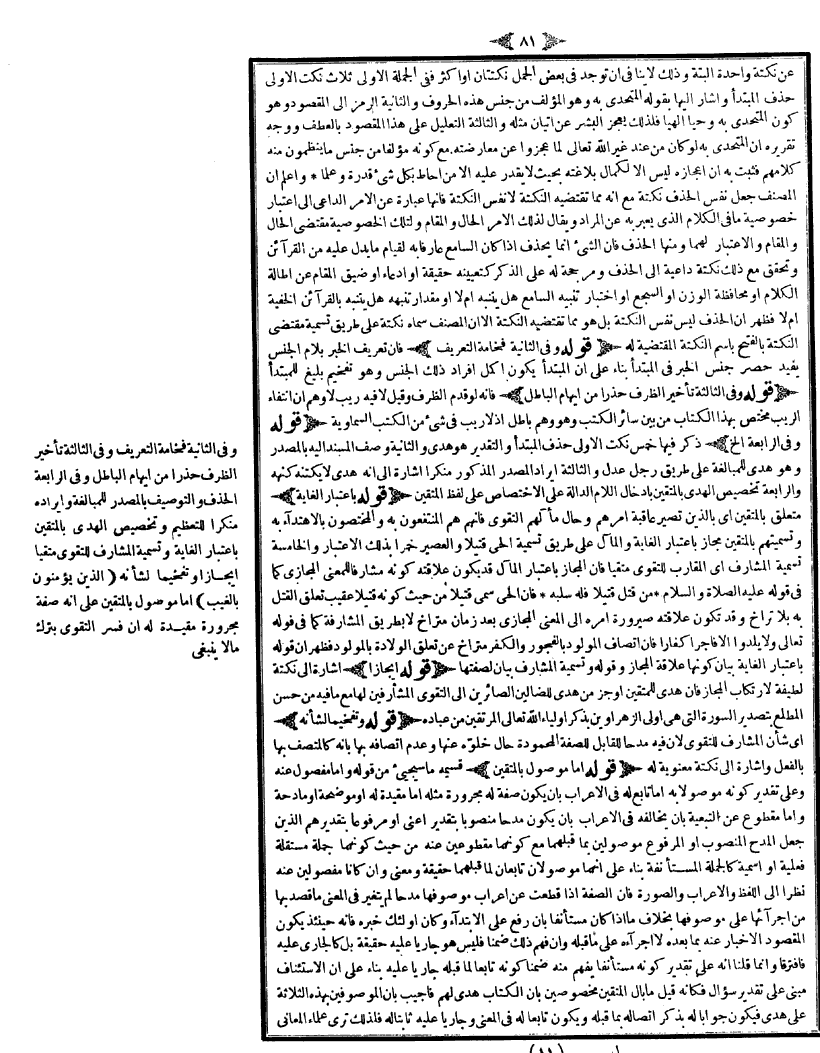 ٨١
عن نكتة واحدة البتة وذلك لاينافى ان توجد فى بعض الجمل نكتتان او اكثر ففى الجملة الاولى ثلاث نكت الاولى
حذف المبتدأ واشار اليها بقوله المتحدى به وهو المؤلف من جنس هذه الحروف والثانية الرمز الى المقصود وهو
كون المتحدى به وحيا الهيا فلذلك يعجز البشر عن اتيان مثله والثالثة التعليل على هذا المقصود بالعطف ووجه
تقريره ان المتحدى به لوكان من عند غير الله تعالى لما عجزوا عن معارضته مع كونه مؤلفا من جنس ماينظمون منه
كلامهم فثبت به ان اعجازه ليس الا لكمال بلاغته بحيث لايقدر عليه الا من احاط بكل شئ قدرة وعلما * واعلم ان
المصنف جعل نفس الحذف نكتة مع انه مما تقتضيه النكتة لانفس النكتة فانها عبارة عن الامر الداعى الى اعتبار
خصوصية مافى الكلام الذى يعبر به عن المراد ويقال لذلك الامر الحال والمقام ولتلك الخصوصية مقتضى الحال
والمقام والاعتبار لهما ومنها الحذف فان الشئ انما يحذف اذا كان السامع عارفا به لقيام مايدل عليه من القرآئن
وتحقق مع ذلك نكتة داعية الى الحذف ومرجحة له على الذكر كتعيينه حقيقة او ادعاء او ضيق المقام عن اطالة
الكلام او محافظة الوزن او السجع او اختبار تنبيه السامع هل يتنبه ام لا او مقدار تنبهه هل يتنبه بالقرآئن الخفية
ام لا فظهر ان الحذف ليس نفس النكتة بل هو مما تقتضيه النكتة الا ان المصنف سماه نكتة على طريق تسمية مقتضى
النكتة بالفتح باسم النكتة المقتضية له ﴿ قوله وفى الثانية فخامة التعريف ﴾ فان تعريف الخبر بلام الجنس
يفيد حصر جنس الخبر فى المبتدأ بناء على ان المبتدأ يكون اكمل افراد ذلك الجنس وهو تفخيم بليغ للمبتدأ
﴿ قوله وفى الثالثة تأخير الظرف حذرا من ايهام الباطل ﴾ فانه لو قدم الظرف وقيل لا فيه ريب لاوهم ان انتفاء
الريب مختص بهذا الكتاب من بين سائر الكتب وهو وهم باطل اذ لاريب فى شئ من الكتب السماوية ﴿ قوله
وفى الرابعة الخ ﴾ ذكر فيها خمس نكت الاولى حذف المبتدأ والتقدير هو هدى والثانية وصف المسند اليه بالمصدر
وهو هدى للمبالغة على طريق رجل عدل والثالثة ايراد المصدر المذكور منكرا اشارة الى انه هدى لايكتنه كنهه
والرابعة تخصيص الهدى بالمتقين بادخال اللام الدالة على الاختصاص على لفظ المتقين ﴿ قوله باعتبار الغاية ﴾
متعلق بالمتقين اى بالذين تصير عاقبة امرهم وحال مآلهم التقوى فانهم هم المنتفعون به والمختصون بالاهتدآء به
وتسميتهم بالمتقين مجاز باعتبار الغاية والمآل على طريق تسمية الحى قتيلا والعصير خمرا بذلك الاعتبار والخامسة
تسمية المشارف اى المقارب للتقوى متقيا فان المجاز باعتبار المآل قد يكون علاقته كونه مشارفا للمعنى المجازى كما
فى قوله عليه الصلاة والسلام * من قتل قتيلا فله سلبه * فان الحى سمى قتيلا من حيث كونه قتيلا عقيب تعلق القتل
به بلا تراخ وقد تكون علاقته صيرورة امره الى المعنى المجازى بعد زمان متراخ لا بطريق المشارفة كما فى قوله
تعالى ولا يلدوا الا فاجرا كفارا فان اتصاف المولود بالفجور والكفر متراخ عن تعلق الولادة بالمولود فظهر ان قوله
باعتبار الغاية بيان كونها علاقة المجاز وقوله وتسمية المشارف بيان لصفتها ﴿ قوله ايجازا ﴾ اشارة الى نكتة
لطيفة لارتكاب المجاز فان هدى للمتقين اوجز من هدى للضالين الصائرين الى التقوى المشارفين لها مع مافيه من حسن
المطلع بتصدير السورة التى هى اولى الزهراوين بذكر اولياء الله تعالى المرتقين من عباده ﴿ قوله وتفخيما لشأنه ﴾
اى شأن المشارف للتقوى لان فيه مدحا للقابل للصفة المحمودة حال خلوه عنها وعدم اتصافه بها بانه كالمتصف بها
بالفعل واشارة الى نكتة معنوية له ﴿ قوله اما موصول بالمتقين ﴾ قسيمه ماسيجيئ من قوله واما مفصول عنه
وعلى تقدير كونه موصولا به اما تابع له فى الاعراب بان يكون صفة له مجرورة مثله اما مقيدة له او موضحة او مادحة
واما مقطوع عن التبعية بان يخالفه فى الاعراب بان يكون مدحا منصوبا بتقدير اعنى او مرفوعا بتقديرهم الذين
جعل المدح المنصوب او المرفوع موصولين بما قبلهما مع كونهما مقطوعين عنه من حيث كونهما جملة مستقلة
فعلية او اسمية كالجملة المستأنفة بناء على انهما موصولان تابعان لما قبلهما حقيقة ومعنى وان كانا مفصولين عنه
نظرا الى اللفظ والاعراب والصورة فان الصفة اذا قطعت عن اعراب موصوفها مدحا لم يتغير فى المعنى ماقصد بها
من اجرآئها على موصوفها بخلاف ما اذا كان مستأنفا بان رفع على الابتدآء وكان اولئك خبره فانه حينئذ يكون
المقصود الاخبار عنه بما بعده لا اجرآءه على ماقبله وان فهم ذلك ضمنا فليس هو جاريا عليه حقيقة بل كالجارى عليه
فافترقا وانما قلنا انه على تقدير كونه مستأنفا يفهم منه ضمنا كونه تابعا لما قبله جاريا عليه بناء على ان الاستئناف
مبنى على تقدير سؤال فكانه قيل مابال المتقين مخصوصين بان الكتاب هدى لهم فاجيب بان الموصوفين بهذه الثلاثة
على هدى فيكون جوابا له بذكر اتصاله بما قبله ويكون تابعا له فى المعنى وجاريا عليه ثابتا له فلذلك ترى علماء المعانى
وفى الثانية فخامة التعريف وفى الثالثة تأخير
الظرف حذرا من ايهام الباطل وفى الرابعة
الحذف والتوصيف بالمصدر للمبالغة وايراده
منكرا للتعظيم وتخصيص الهدى بالمتقين
باعتبار الغاية وتسمية المشارف للتقوى متقيا
ايجازا وتفخيما لشأنه ( الذين يؤمنون
بالغيب ) اما موصول بالمتقين على انه صفة
مجرورة مقيدة له ان فسر التقوى بترك
مالا ينبغى
(١١)